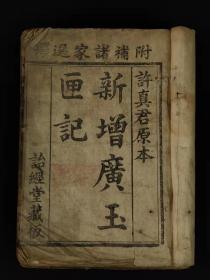 附補諸家選擇
許真君原本
新增廣玉
匣記
經堂藏板